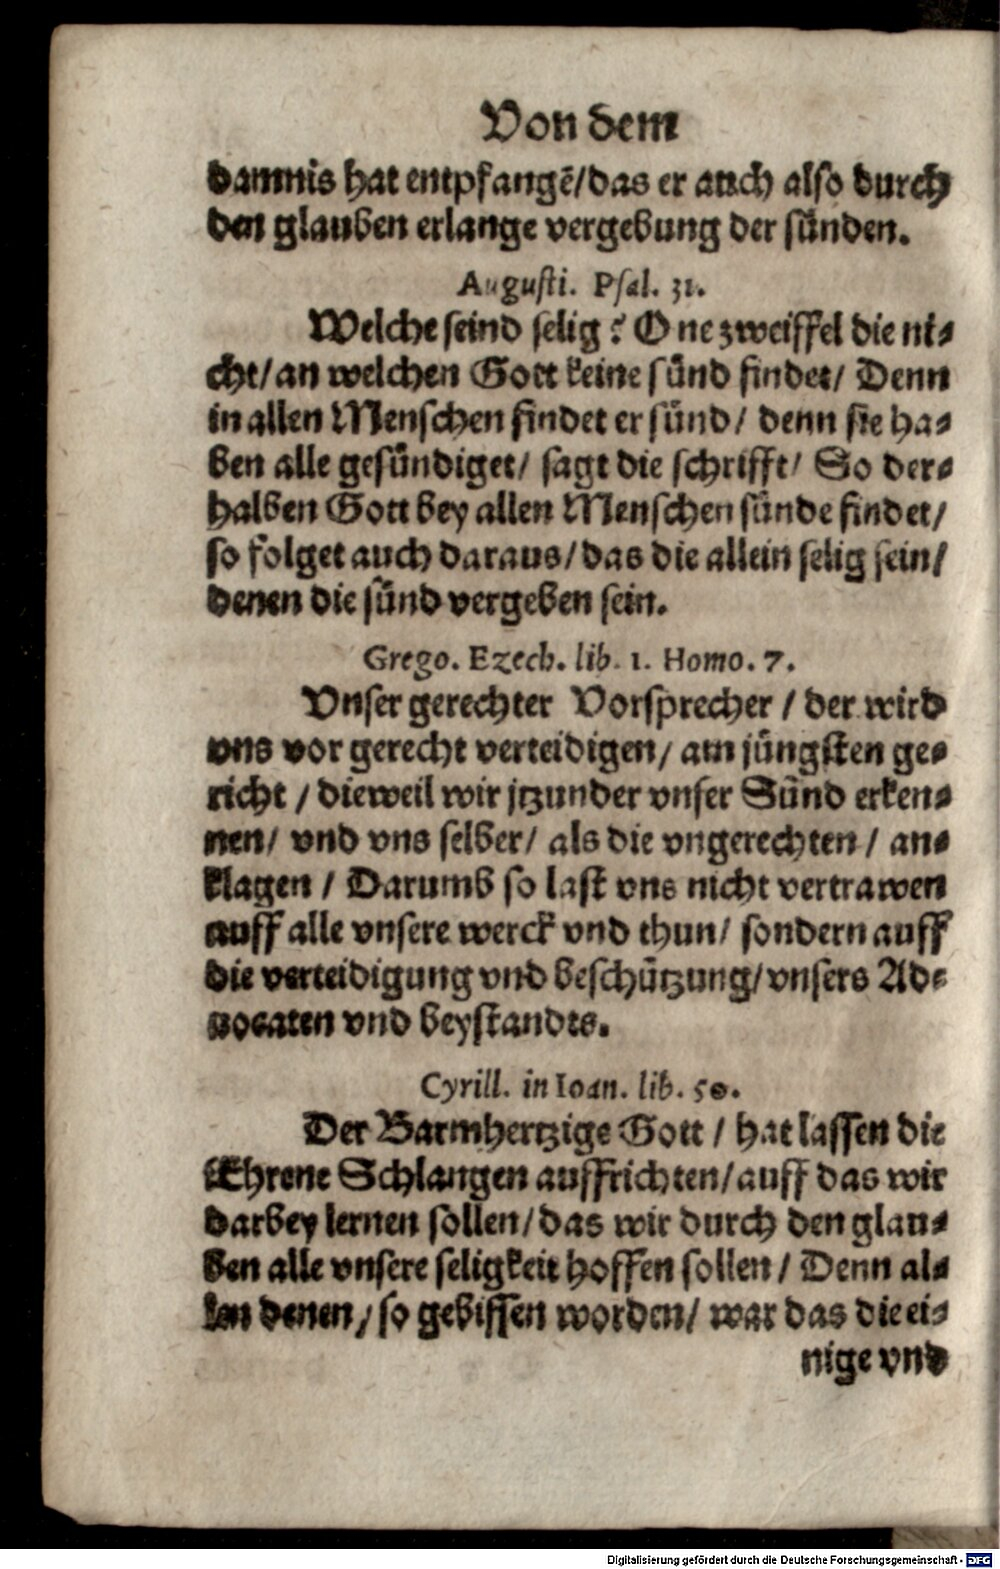 Von dem
damnis hat entpfangẽ/das er auch also durch
den glauben erlange vergebung der sünden.
Augusti. Psal. 31.
Welche seind selig? One zweiffel die ni-
cht/an welchen Gott keine sünd findet/ Denn
in allen Menschen findet er sünd/ denn sie ha-
ben alle gesündiget/ sagt die schrifft/ So der-
halben Gott bey allen Menschen sünde findet/
so folget auch daraus/das die allein selig sein/
denen die sünd vergeben sein.
Grego. Ezech. lib. 1. Homo. 7.
Vnser gerechter Vorsprecher / der wird
vns vor gerecht verteidigen/ am jüngsten ge-
richt / dieweil wir jtzunder vnser Sünd erken-
nen/ vnd vns selber/ als die vngerechten/ an-
klagen / Darumb so last vns nicht vertrawen
auff alle vnsere werck vnd thun/ sondern auff
die verteidigung vnd beschützung/vnsers Ad-
uocaten vnd beystandes.
Cyrill. in Ioan. lib. 50.
Der Barmhertzige Gott / hat lassen die
Ehrene Schlangen auffrichten/auff das wir
darbey lernen sollen/das wir durch den glau-
ben alle vnsere seligkeit hoffen sollen/ Denn al-
len denen/so gebissen worden/ war das die ei-
nige vnd
Digitalisierung gefördert durch die Deutsche Forschungsgemeinschaft - DFG